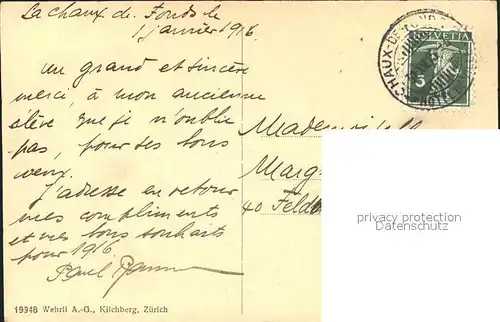 La chaux de Fonds le
1 janvier 1916
Un grand et sincère
merci, à mon ancienne
élève que je n'oublie
pas, pour ses bons
voeux.
J'adresse en retour
mes compliments
et mes bons souhaits
pour 1916
Paul
19948 Wehrli A.-G., Kilchberg, Zürich
CHAUX-DE-FONDS
HELVETIA
5
Mademoiselle
Marg
40 Feld
privacy protection
Datenschutz